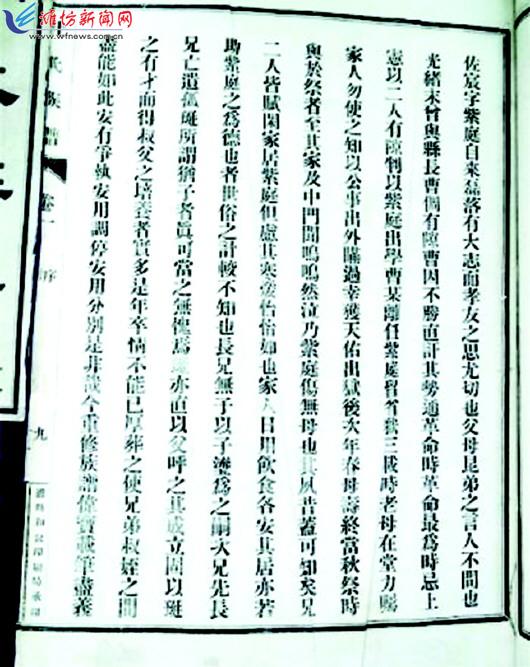 潍坊新闻网
www.wfnews.com.cn
佐宸字紫庭自来磊落有大志而孝友之思尤切也父母昆弟之言人不間也
光緒末曾與縣長曹倜有隙曹因不勝直計其勢適革命時革命最為時忌上
憲以二人有隙判以紫庭出學曹某離任紫庭留省獄三載時老母在堂力囑
家人勿使之知以公事出外睡過幸獲天佑出獄後次年春母壽終當秋祭時
與於祭者至其家及中門聞嗚嗚然泣乃紫庭傷無母也其夙昔蓋可知矣兄
二人皆賦閑家居紫庭但慮其寒怡怡如也家人日用飲食各安其居亦若
助紫庭之為德也者世俗之計較不知也長兄無子以子濟為之嗣次兄先長
兄亡遺孤斑所謂猶子者真可當之無愧焉亦直以父呼之其成立固以斑
之有才而得叔父之培養者實多是年卒情不能已厚葬之使兄弟叔姪之間
盡能如此安有爭執安用調停安用分別是非哉今重修族譜偉實載筆盡義
氏族譜
卷一
序
九